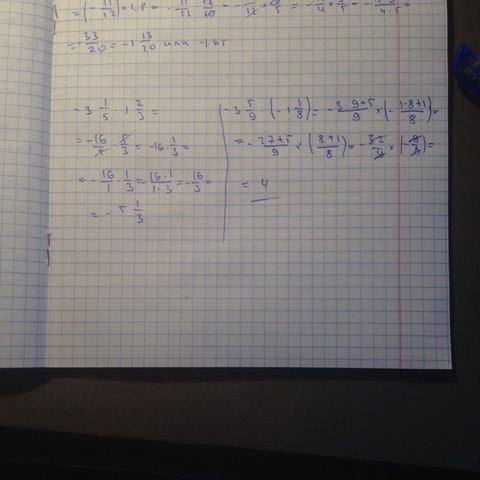 = (-11/12) · 1,8 =
= -33/20 = -1 13/20 или -1,65
-3 1/5 · 1 2/3 =
= -16/5 · 5/3 = -16 · 1/3 =
= -16/1 · 1/3 = 16·1/1·3 = -16/3 =
= -5 1/3
-3 5/9 · (-1 1/8) = -3·9+5/9 × (-1·8+1/8) =
= -27+5/9 × (8+1/8) = -32/9 × (-9/8) =
= 4